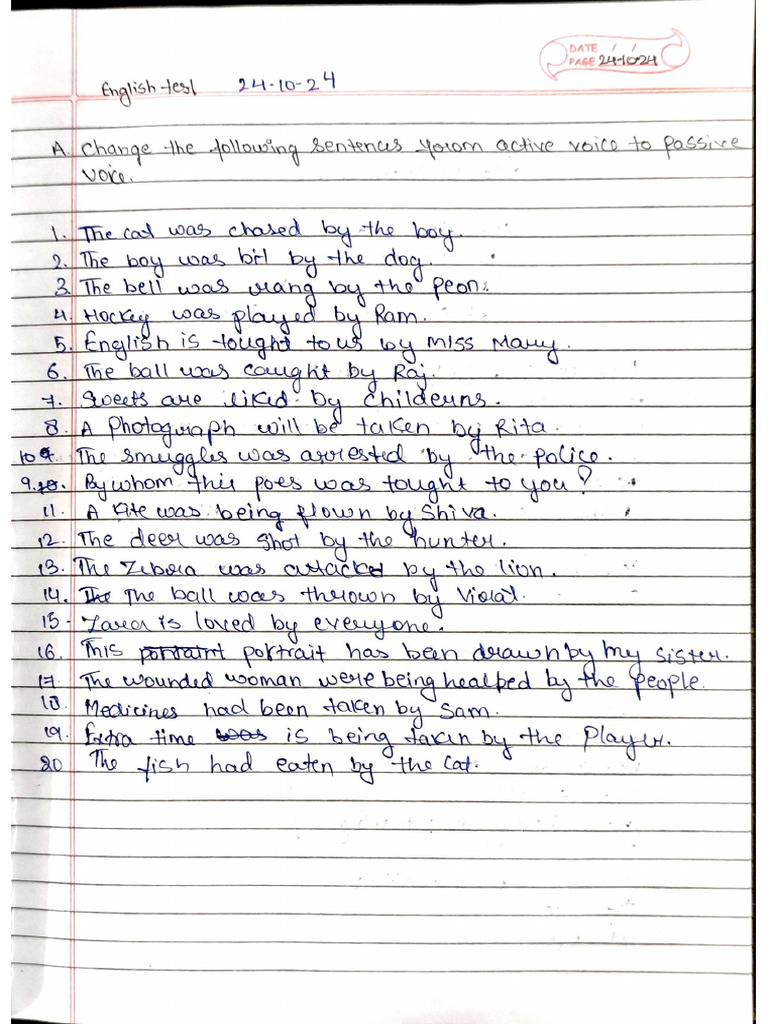 DATE / /
PAGE 24-10-24
English test 24-10-24
A. Change the following sentences from active voice to passive
voice.
1. The cat was chased by the boy.
2. The boy was bit by the dog.
3. The bell was rang by the peon.
4. Hockey was played by Ram.
5. English is tought to us by Miss Mary.
6. The ball was caught by Raj.
7. Sweets are liked by childerns.
8. A Photograph will be taken by Rita.
10. The smuggles was arrested by the police.
9. By whom this poes was tought to you?
11. A Kite was being flown by Shiva.
12. The deer was shot by the hunter.
13. The Zebra was attackd by the lion.
14. The ball was thrown by Virat.
15. Zara is loved by everyone.
16. This portrait has been drawn by my sister.
17. The wounded woman were being healped by the people.
18. Medicines had been taken by Sam.
19. Extra time was is being taken by the Player.
20 The fish had eaten by the cat.